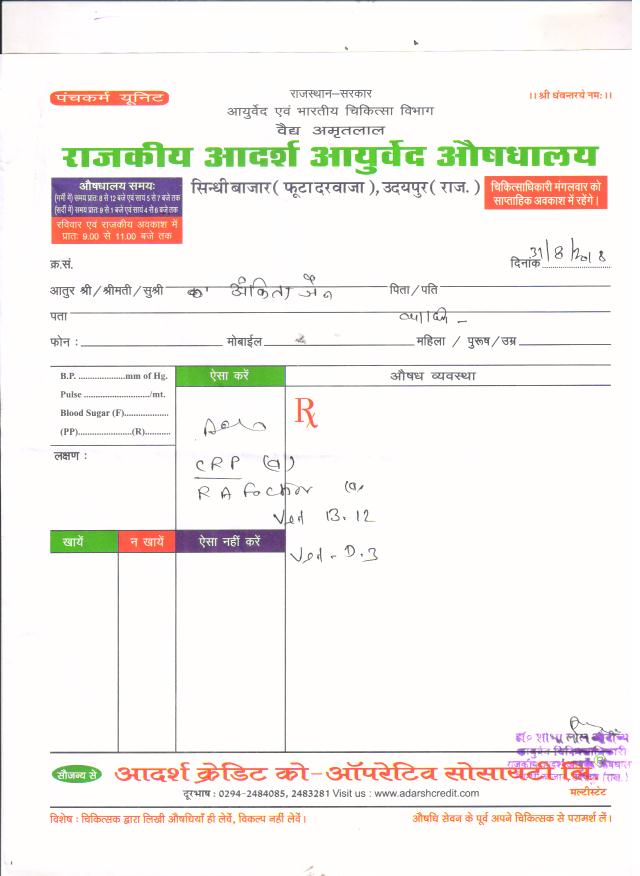 पंचकर्म यूनिट
राजस्थान–सरकार
।। श्री धंवन्तरये नमः ।।
आयुर्वेद एवं भारतीय चिकित्सा विभाग
वैद्य अमृतलाल
राजकीय आदर्श आयुर्वेद औषधालय
औषधालय समयः
(गर्मी में) समय प्रातः 8 से 12 बजे एवं सायं 5 से 7 बजे तक
(सर्दी में) समय प्रातः 9 से 1 बजे एवं सायं 4 से 6 बजे तक
रविवार एवं राजकीय अवकाश में
प्रातः 9.00 से 11.00 बजे तक
सिन्धी बाजार ( फूटा दरवाजा ), उदयपुर ( राज. )
चिकित्साधिकारी मंगलवार को
साप्ताहिक अवकाश में रहेंगे।
क्र.सं.
दिनांक 31/8/2018
आतुर श्री/श्रीमती/सुश्री अंकिता जैन पिता/पति
पता
फोन : मोबाईल महिला / पुरूष/उम्र
B.P. .....................mm of Hg.
Pulse ............................../mt.
Blood Sugar (F)....................
(PP)........................(R)...........
लक्षण :
ऐसा करें
औषध व्यवस्था
Rx
CRP (a)
RA Factor (a)
Ved B.12
Ved - D.3
खायें
न खायें
ऐसा नहीं करें
सौजन्य से
आदर्श क्रेडिट को-ऑपरेटिव सोसायटी लि
मल्टीस्टेट
दूरभाष : 0294-2484085, 2483281 Visit us : www.adarshcredit.com
विशेष : चिकित्सक द्वारा लिखी औषधियाँ ही लेवें, विकल्प नहीं लेवें।
औषधि सेवन के पूर्व अपने चिकित्सक से परामर्श लें।